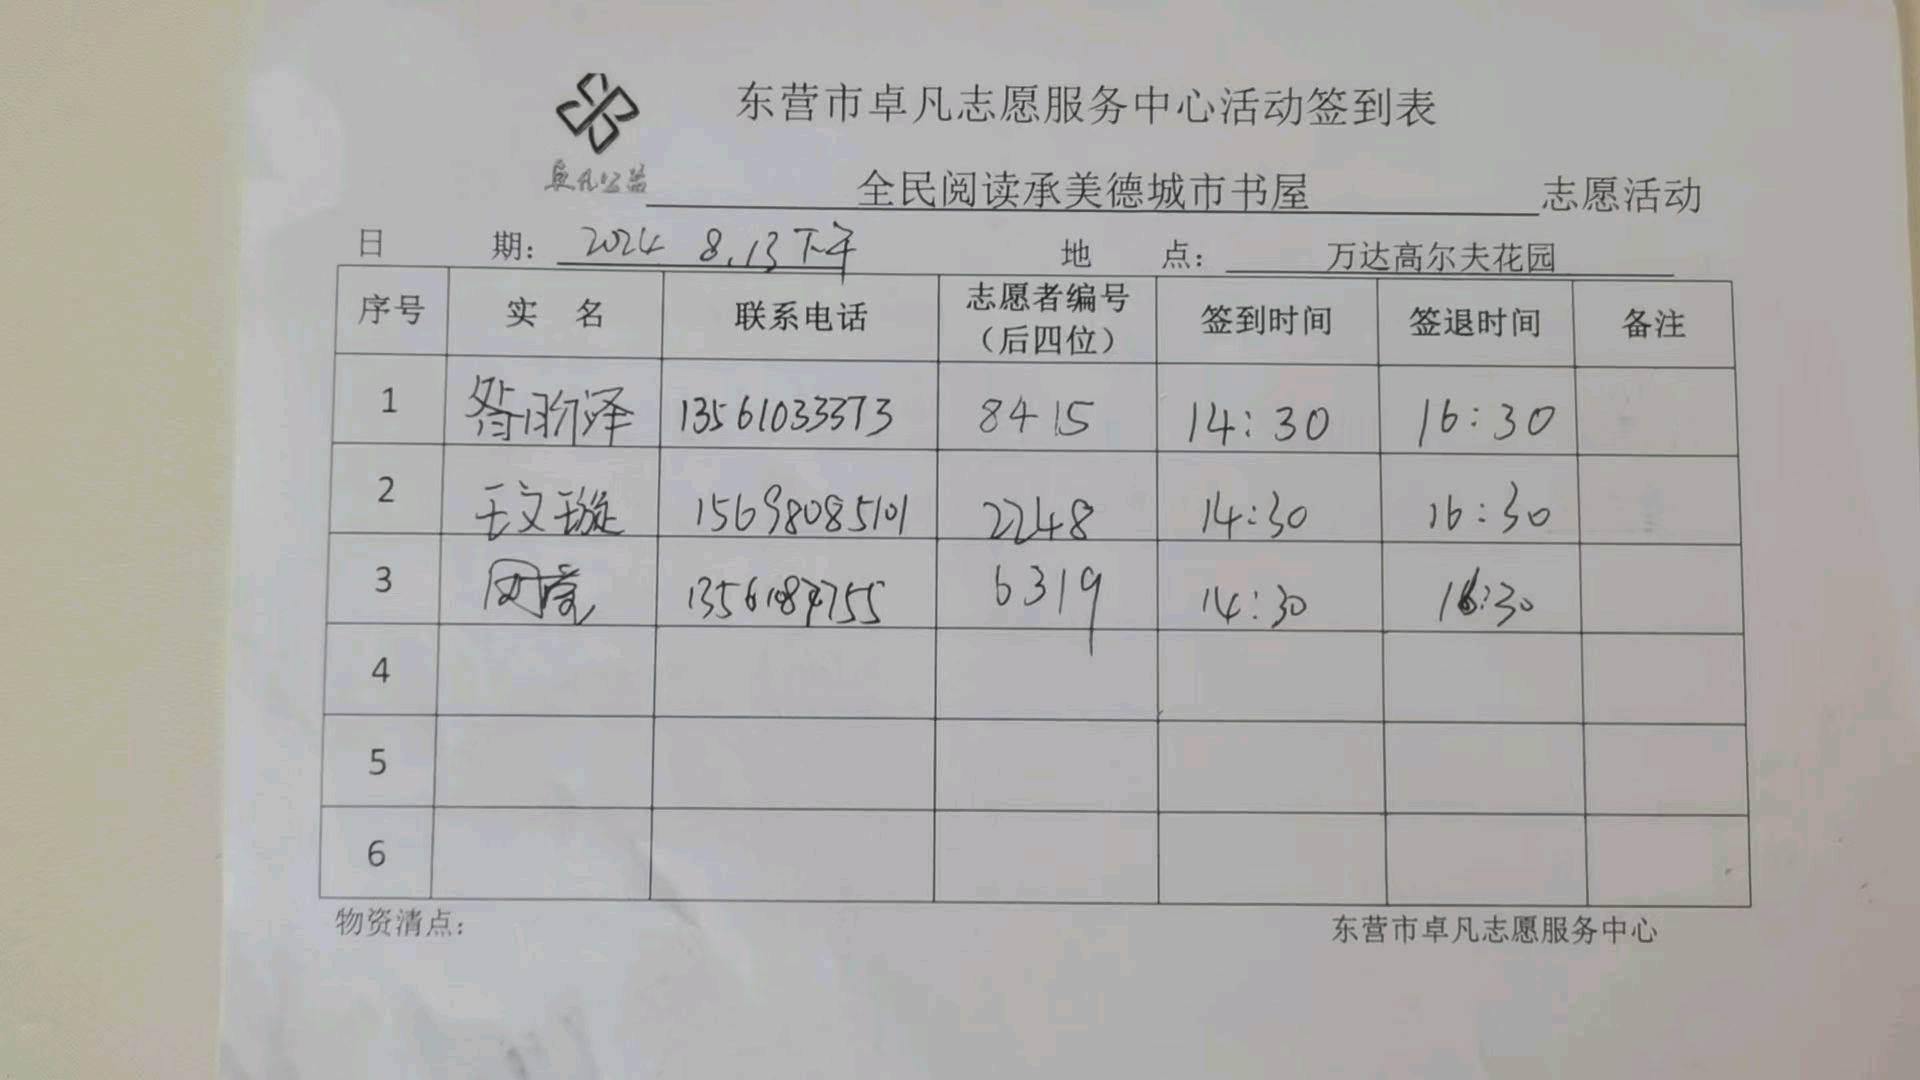 东营市卓凡志愿服务中心活动签到表
卓凡公益
全民阅读承美德城市书屋 志愿活动
日 期: 2024 8.13下午 地 点: 万达高尔夫花园
序号 实 名 联系电话 志愿者编号（后四位） 签到时间 签退时间 备注
1 昝昕泽 13561033373 8415 14:30 16:30
2 王文璇 15698085101 2248 14:30 16:30
3 6319 14:30 16:30
4
5
6
物资清点: 东营市卓凡志愿服务中心